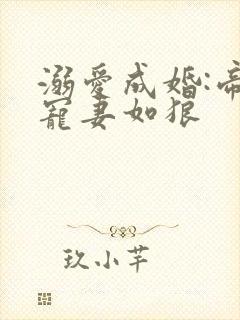 溺愛成婚:帝
寵妻如狼
玖小芊